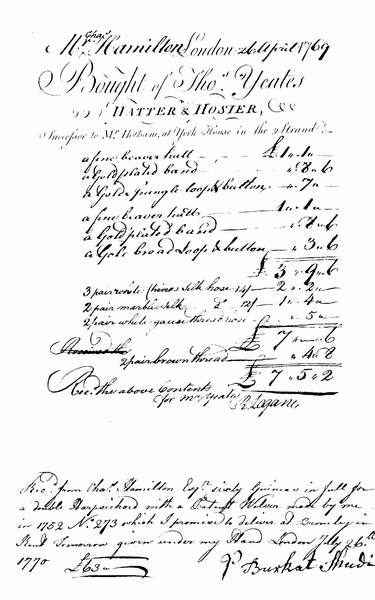 Mr. Chas. Hamilton London 26 April 1769
Bought of Thos. Yeates
HATTER & HOSIER,
Successor to Mr. at York House in the Strand
a fine beaver hatt £1 " 1 "
a Gold plated band " 8 " 6
a Gold loop & button " 7 "
a fine beaver hatt 1 " 1 "
a Gold plated band " 8 " 6
a Gold broad Loop & button " 3 " 6
£ 3 " 9 " 6
3 pair white China silk hose 14/ 2 " 2 "
2 pair marble silk Do 12/ 1 " 4 "
2 pair white gauze thread hose " 5 "
£ 7 " " 6
Received the
2 pair brown thread " 4 " 8
£ 7 " 5 " 2
Rec. the above Contents
for Mr Yeates
Rec'd. from Chas. Hamilton Esqr. sixty Guineas in full for
a double Harpsichord with a Patent made by me
in 1752 No. 273 which I promise to deliver at Bromley in
Kent Tomorrow given under my Hand London July 26th
1770 £63 " Burkat Shudi